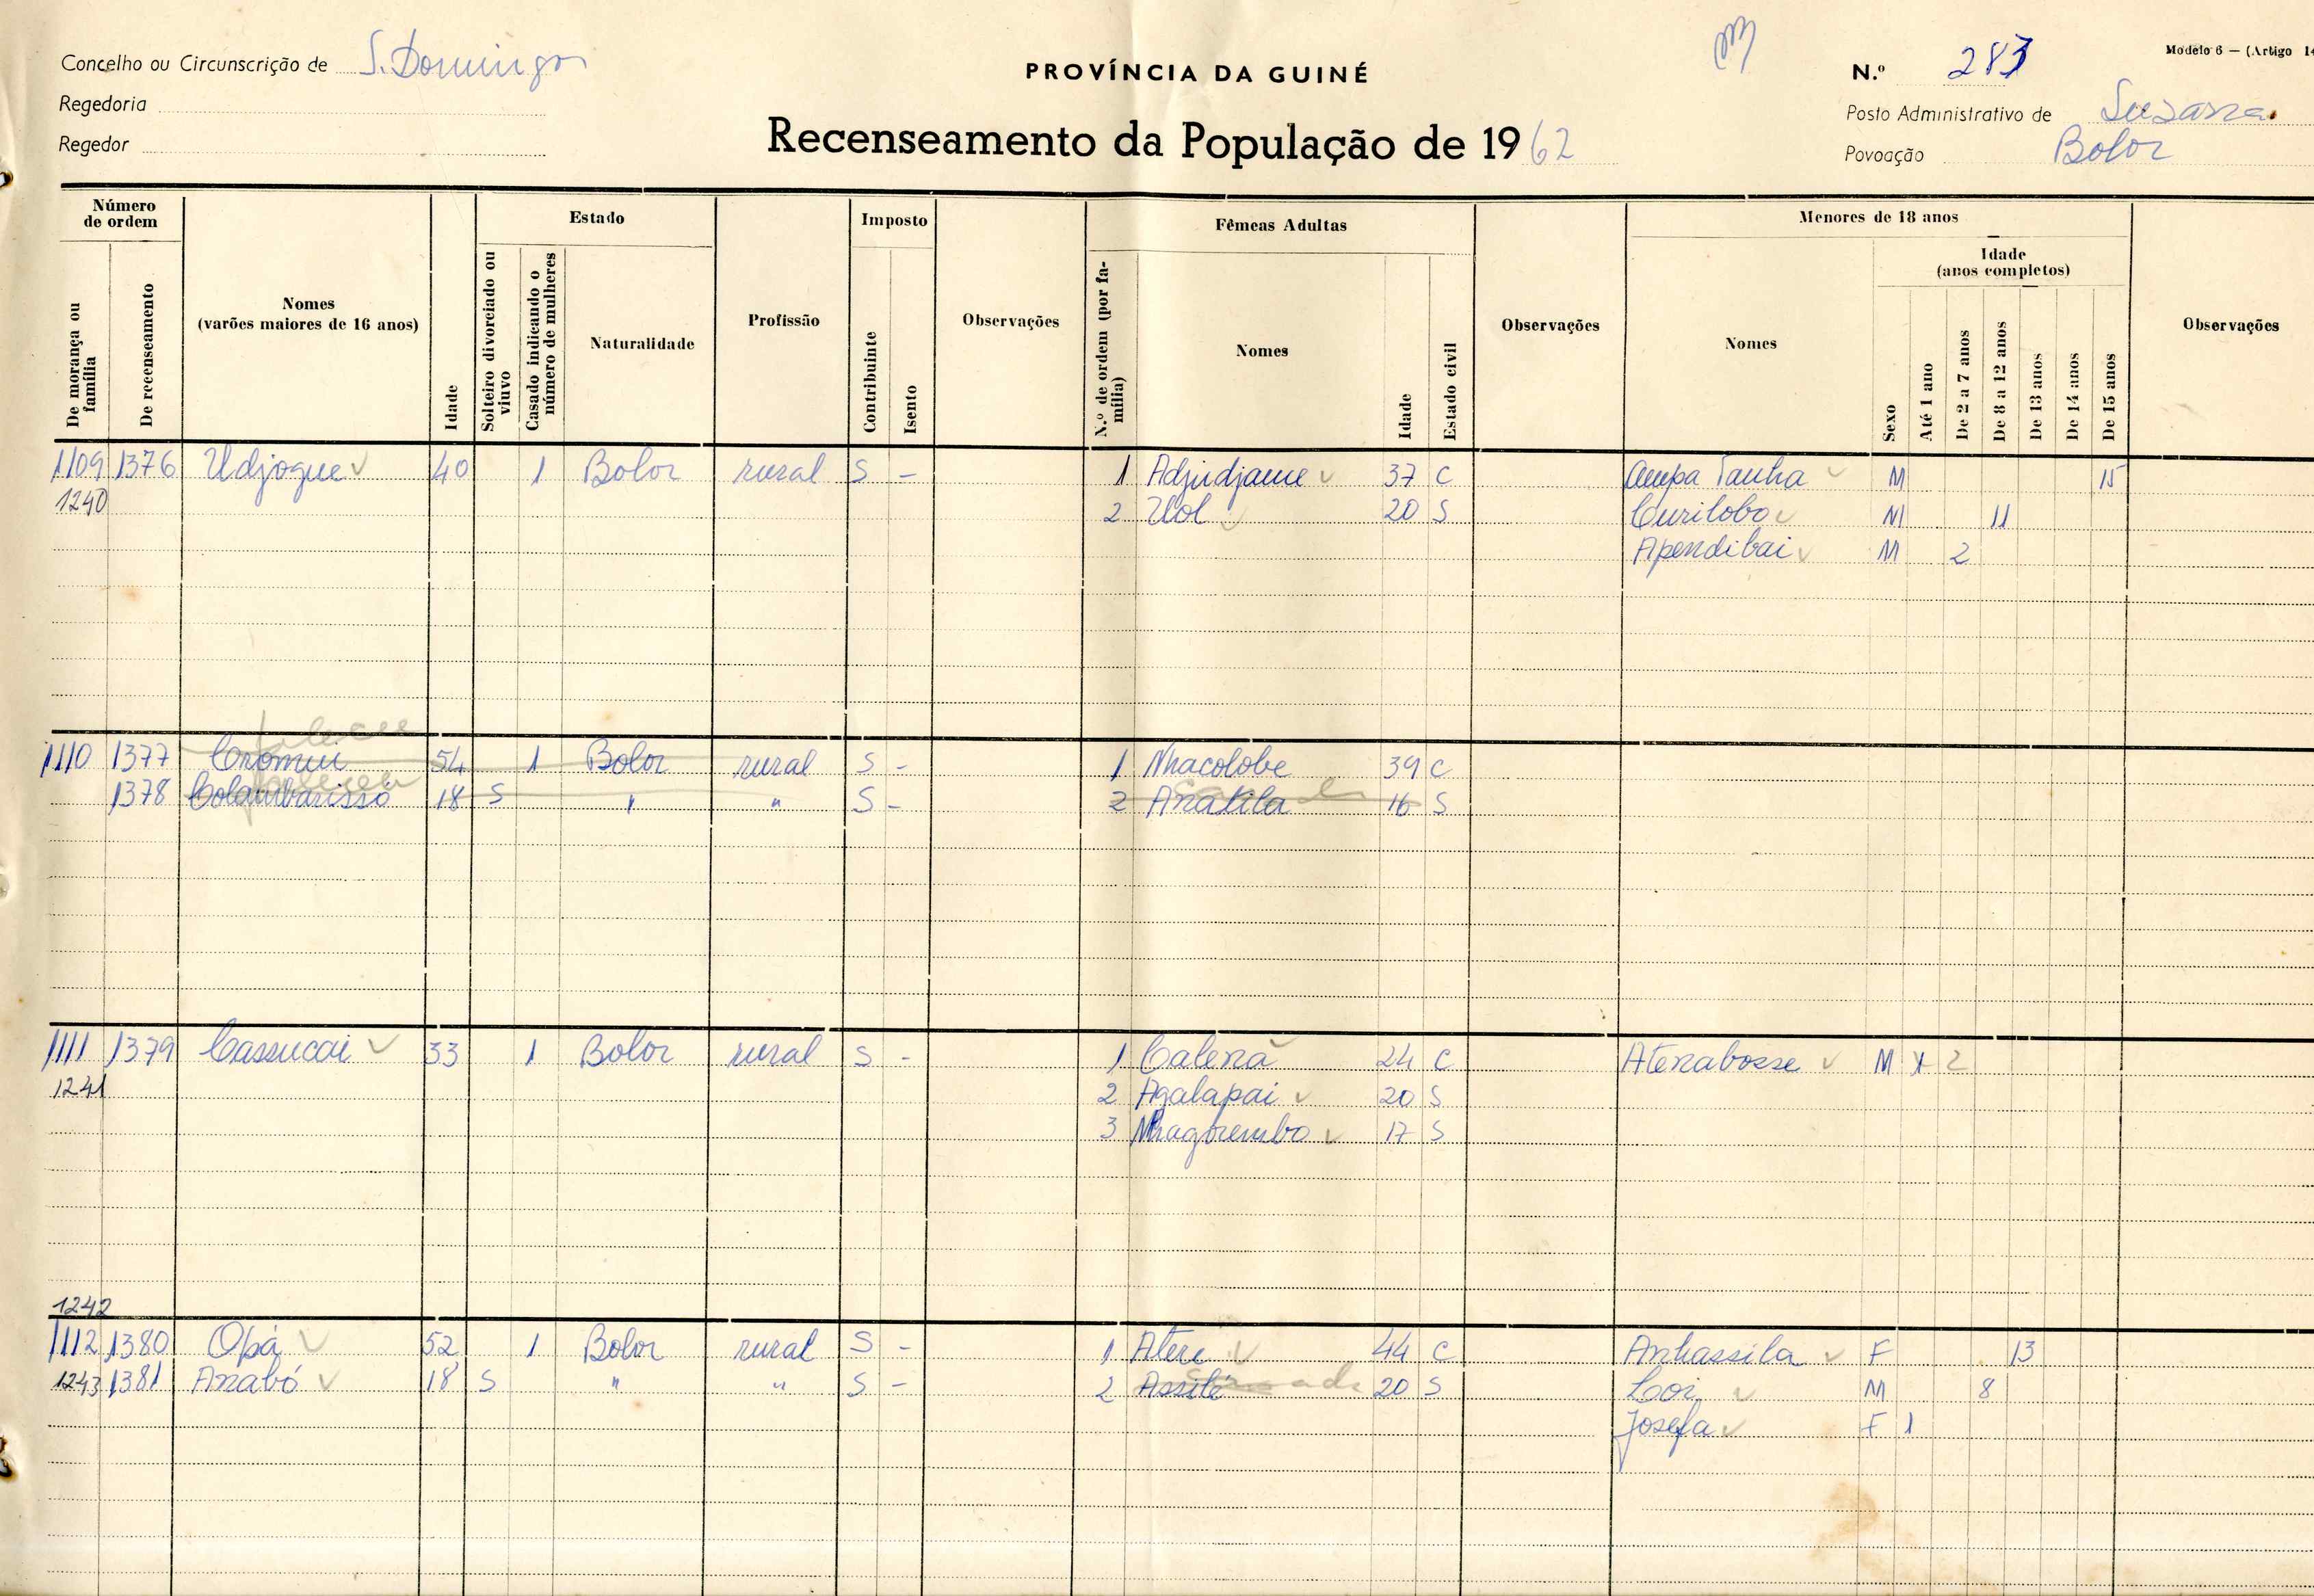 Concelho ou Circunscrição de S. Domingos
Regedoria
Regedor
PROVÍNCIA DA GUINÉ
Recenseamento da População de 1962
N.º 283
Modelo 6 — (Artigo 14
Posto Administrativo de Susana
Povoação Bolor
Número de ordem
De morança ou família
De recenseamento
Nomes (varões maiores de 16 anos)
Idade
Estado
Solteiro divorciado ou viuvo
Casado indicando o número de mulheres
Naturalidade
Profissão
Imposto
Contribuinte
Isento
Observações
Fêmeas Adultas
N.º de ordem (por família)
Nomes
Idade
Estado civil
Observações
Menores de 18 anos
Nomes
Sexo
Idade (anos completos)
Até 1 ano
De 2 a 7 anos
De 8 a 12 anos
De 13 anos
De 14 anos
De 15 anos
Observações
1109 1376 Udjogue 40 1 Bolor rural S - 1 Adjudjame 37 C Ampa Tanha M 15
1240 2 Uol 20 S Curilobo M 11
Apendibai M 2
faleceu
1110 1377 Cromui 54 1 Bolor rural S - 1 Nhacolobe 39 C
faleceu
1378 Colambarissó 18 S " " S - 2 Anatila 16 S
1111 1379 Cassucai 33 1 Bolor rural S - 1 Calena 24 C Atenabosse M 1 2
1241 2 Agalapai 20 S
3 Nhagbrembo 17 S
1242
1112 1380 Opá 52 1 Bolor rural S - 1 Atere 44 C Anhassila F 13
1243 1381 Anabó 18 S " " S - 2 Assilé 20 S Loi M 8
Josefa F 1